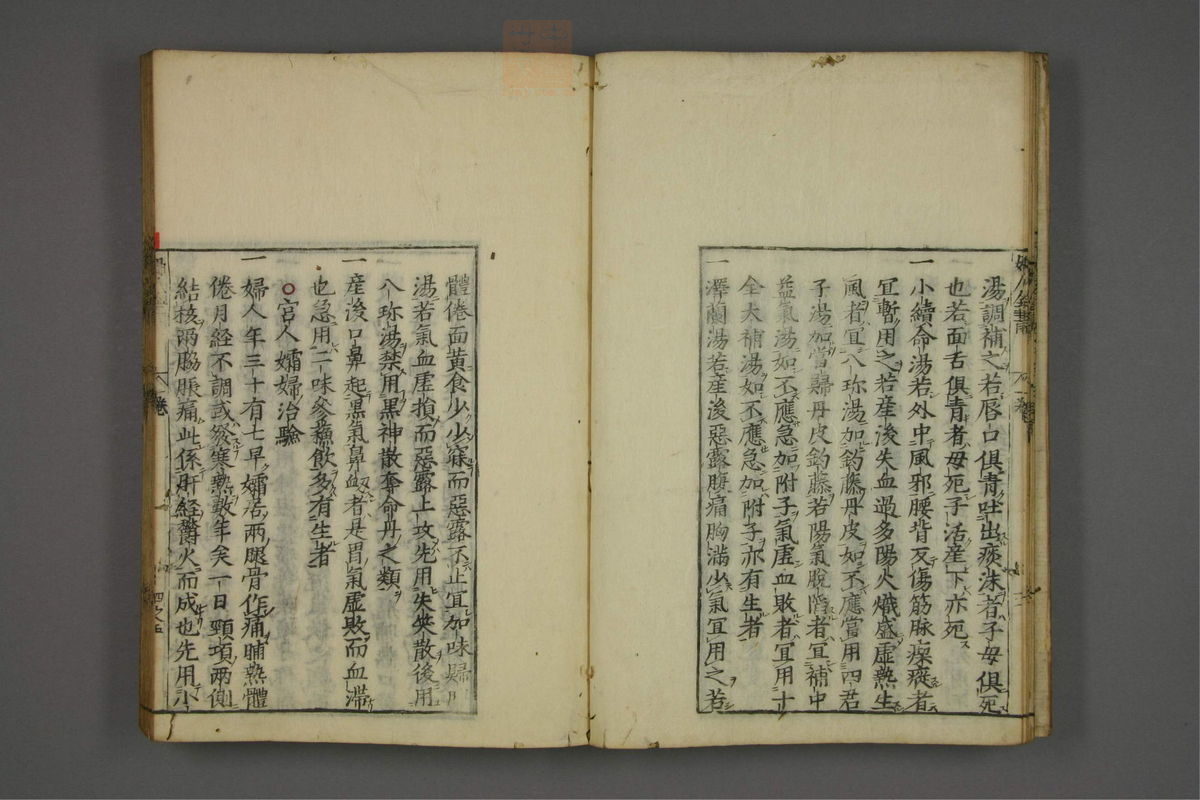 湯調補之若唇口俱青吐出痰沫者子母俱死
也若面舌俱青者母死子活産下亦死
一小續命湯若外中風邪腰背反傷筋脉瘈瘲者
冝暫用之若産後失血過多陽火熾盛虚熱生
風者冝八珎湯加鈎藤丹皮如不應當用四君
子湯加當歸丹皮鈎藤若陽氣脫陷者冝補中
益氣湯如不應急加附子氣虚血敗者冝用十
全大補湯如不應急加附子亦有生者
一澤蘭湯若産後惡露腹痛胸滿少氣冝用之若
體倦面黄食少少寐而惡露不止宜加味歸
湯若氣血虚損而惡露上攻先用失笑散後用
八珎湯禁用黒神散奪命丹之類
一産後口鼻起黒氣鼻衂者是胃氣虚敗而血滯
也急用二味參蘓飲多有生者
宮人孀婦治驗
一婦人年三十有七早孀居兩腿骨作痛晡熱體
倦月經不調或發寒熱數年矣一日頸項兩側
結核兩脇脹痛此係肝經鬱火而成也先用小
卷